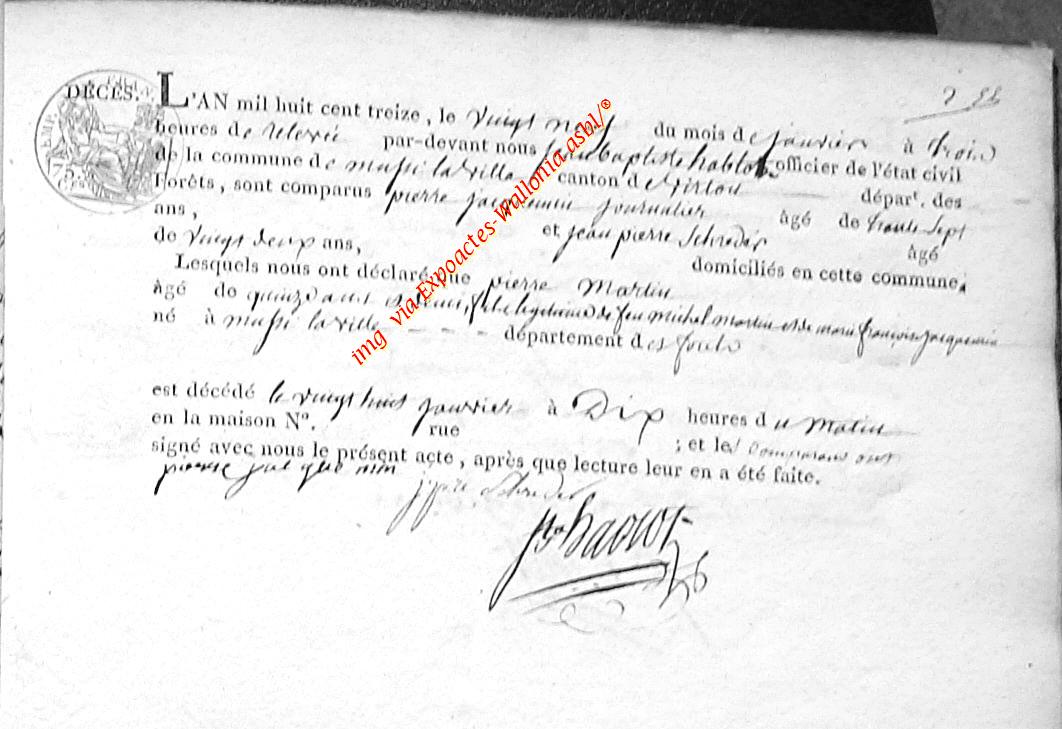 DÉCÈS. L'AN mil huit cent treize, le vingt neuf du mois de janvier à trois
heures de relevée par-devant nous jean baptiste officier de l'état civil
de la commune de mussi la ville canton de virton départ. des
Forêts, sont comparus pierre jacquemin journalier âgé de trente Sept
ans, et jean pierre Schreder âgé
de vingt deux ans, domiciliés en cette commune,
Lesquels nous ont déclaré que pierre Martin
âgé de quinze ans et demi, fils legitime de feu michel martin et de marie françoise jacquemin
né à mussi la ville département des forets
est décédé le vingt huit janvier à Dix heures du matin
en la maison N°. rue ; et les comparans ont
signé avec nous le présent acte, après que lecture leur en a été faite.
pierre jac que min
Schreder
img via Expoactes-Wallonia.asbl/®